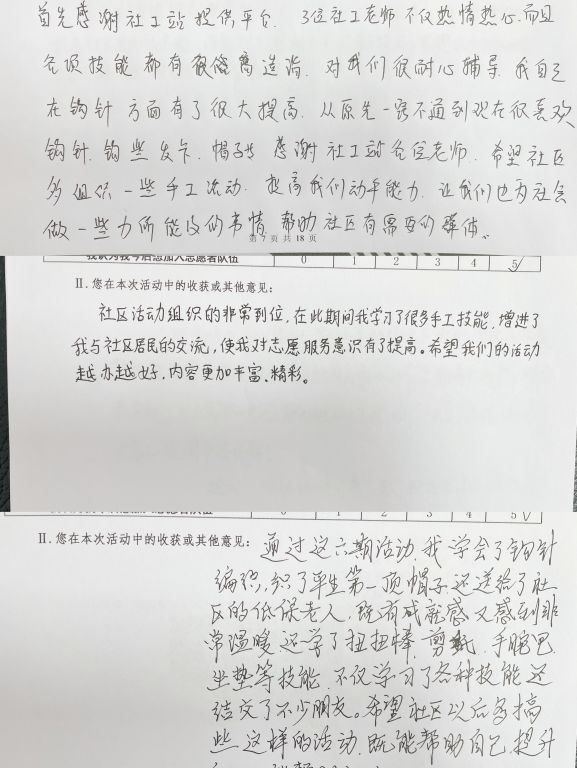 首先感谢社工站提供平台. 3位社工老师不仅热情热心.而且
各项技能都有很高造诣. 对我们很耐心辅导. 我自己
在钩针方面有了很大提高. 从原先一窍不通到现在很喜欢
钩针. 钩些发卡. 帽子等 感谢社工站各位老师. 希望社区
多组织一些手工活动. 提高我们动手能力. 让我们也为社会
做一些力所能及的事情. 帮助社区有需要的群体。
第 7 页 共 18 页
我认为我今后愿加入志愿者队伍 0 1 2 3 4 5√
II. 您在本次活动中的收获或其他意见:
社区活动组织的非常到位, 在此期间我学习了很多手工技能, 增进了
我与社区居民的交流, 使我对志愿服务意识有了提高。希望我们的活动
越办越好, 内容更加丰富、精彩。
0 1 2 3 4 5√
II. 您在本次活动中的收获或其他意见: 通过这六期活动, 我学会了钩针
编织, 织了平生第一顶帽子, 还送给了社
区的低保老人, 既有成就感又感到非
常温暖 还学了扭扭棒, 剪纸, 手腕包
坐垫等技能, 不仅学习了各种技能 还
结交了不少朋友。希望社区以后多搞
些这样的活动, 既能帮助自己提升